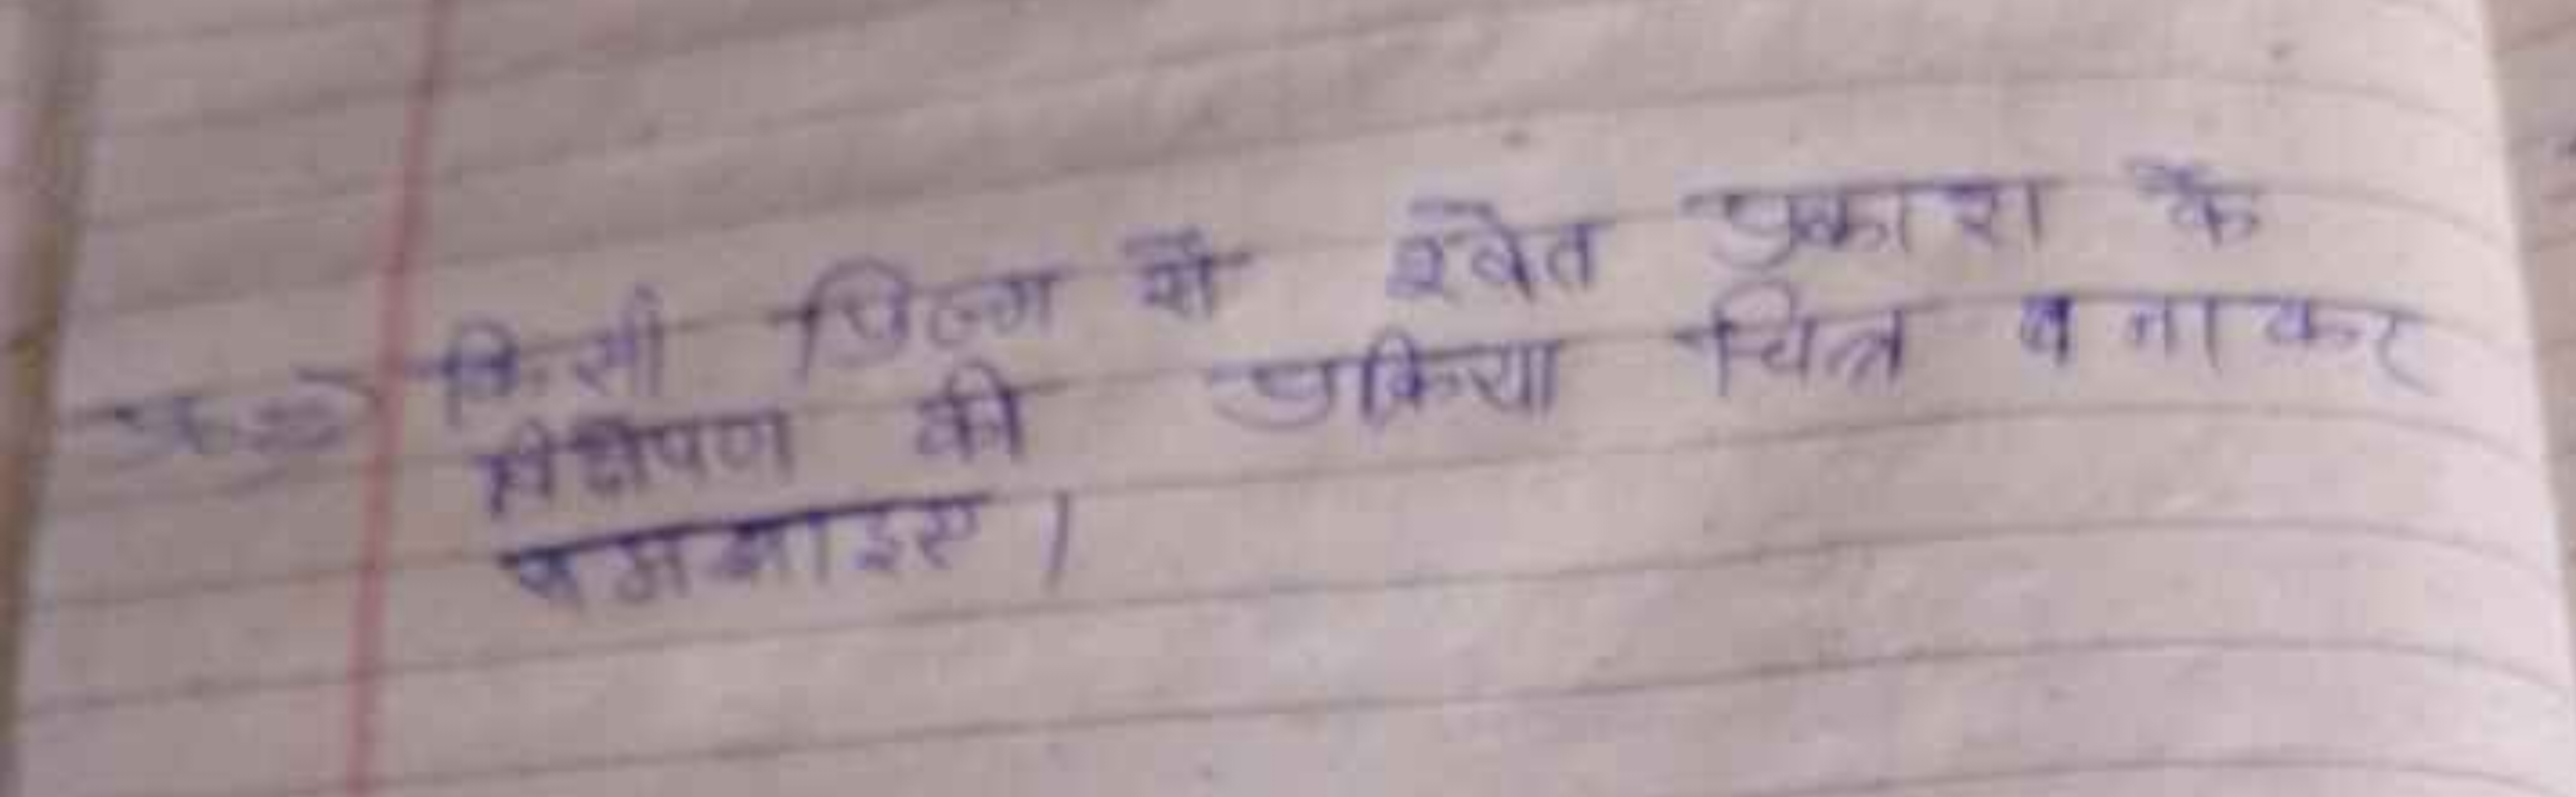 किसी प्रिज्म से श्वेत प्रकाश के
विक्षेपण की प्रक्रिया चित्र बनाकर
समझाइए।